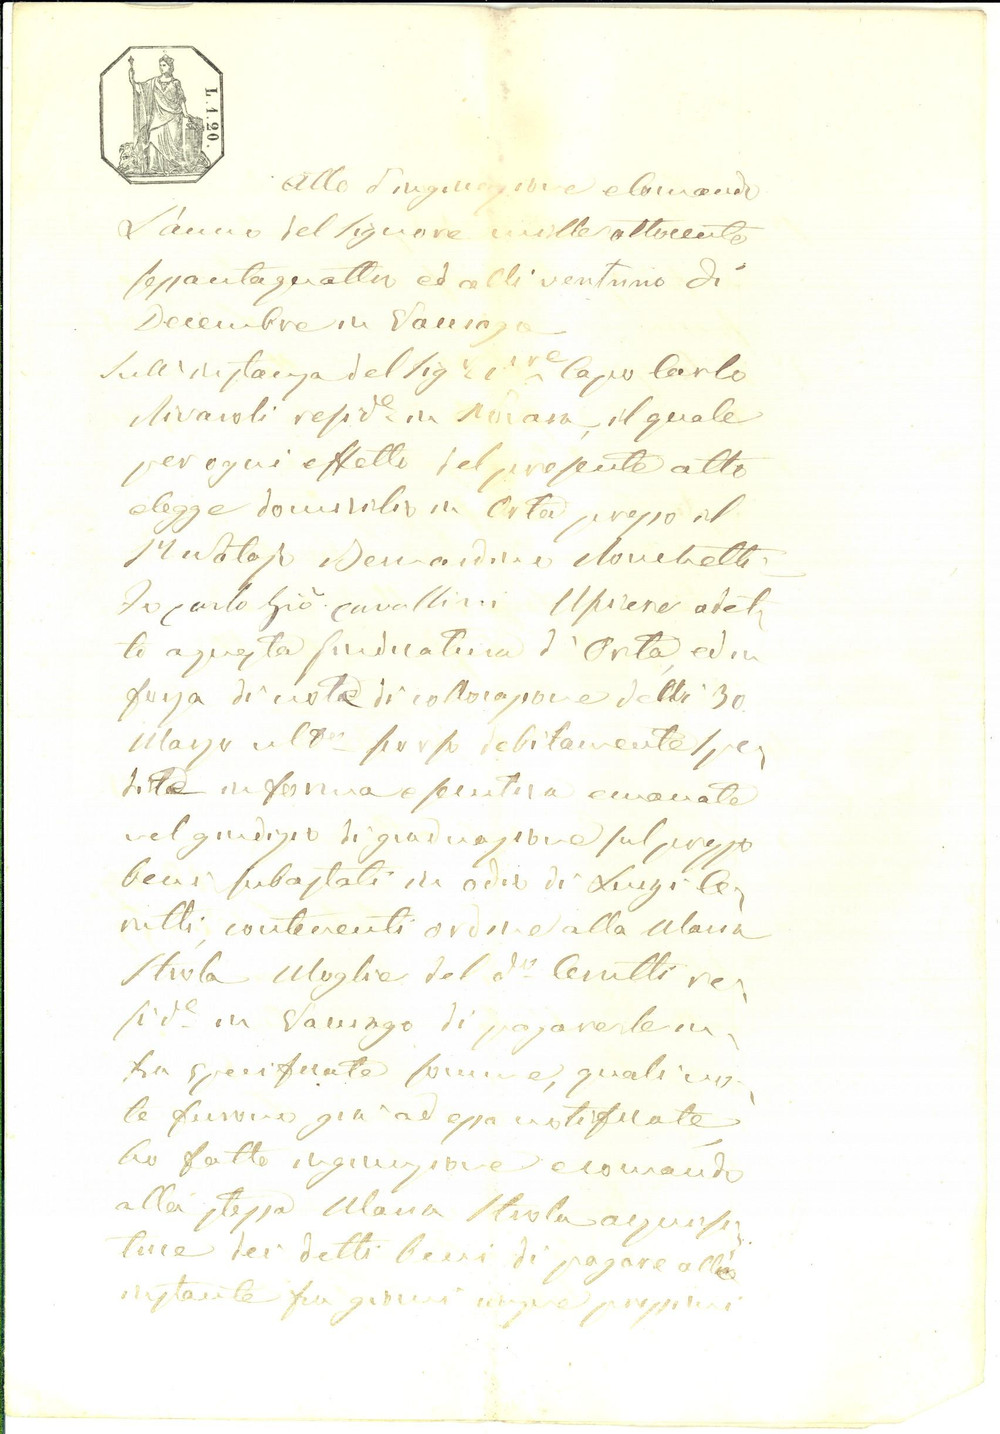 L. 1. 20.
Atto d'ingiunzione e comando
L'anno del Signore mille ottocento
settantaquattro ed alli ventuno di
Decembre in
Sull'instanza del Sig. Capo Carlo
Rivaroli resid.e in Novara, il quale
per ogni effetto del presente atto
elegge domicilio in Orta presso il
Bernardino Ronchetti
Io Carlo Gio. Cavallini Usciere adet,
to a questa Giudicatura d'Orta, ed in
forza di note di collocazione delli 30.
Marzo ult.mo scorso debitamente spe,
dite in forma esecutiva emanate
nel giudizio di graduazione sul prezzo
beni subastati in odio di Luigi Ce,
rutti, contenenti ordine alla Maria
Strola Moglie del d.o Cerutti re,
sid.e in di pagare le in,
fra specificate somme, quali no,
te furono già ad essa notificate,
ho fatto ingiunzione e comando
alla stessa Maria Strola acquisi,
trice dei detti beni di pagare allo
instante fra giorni cinque prossimi